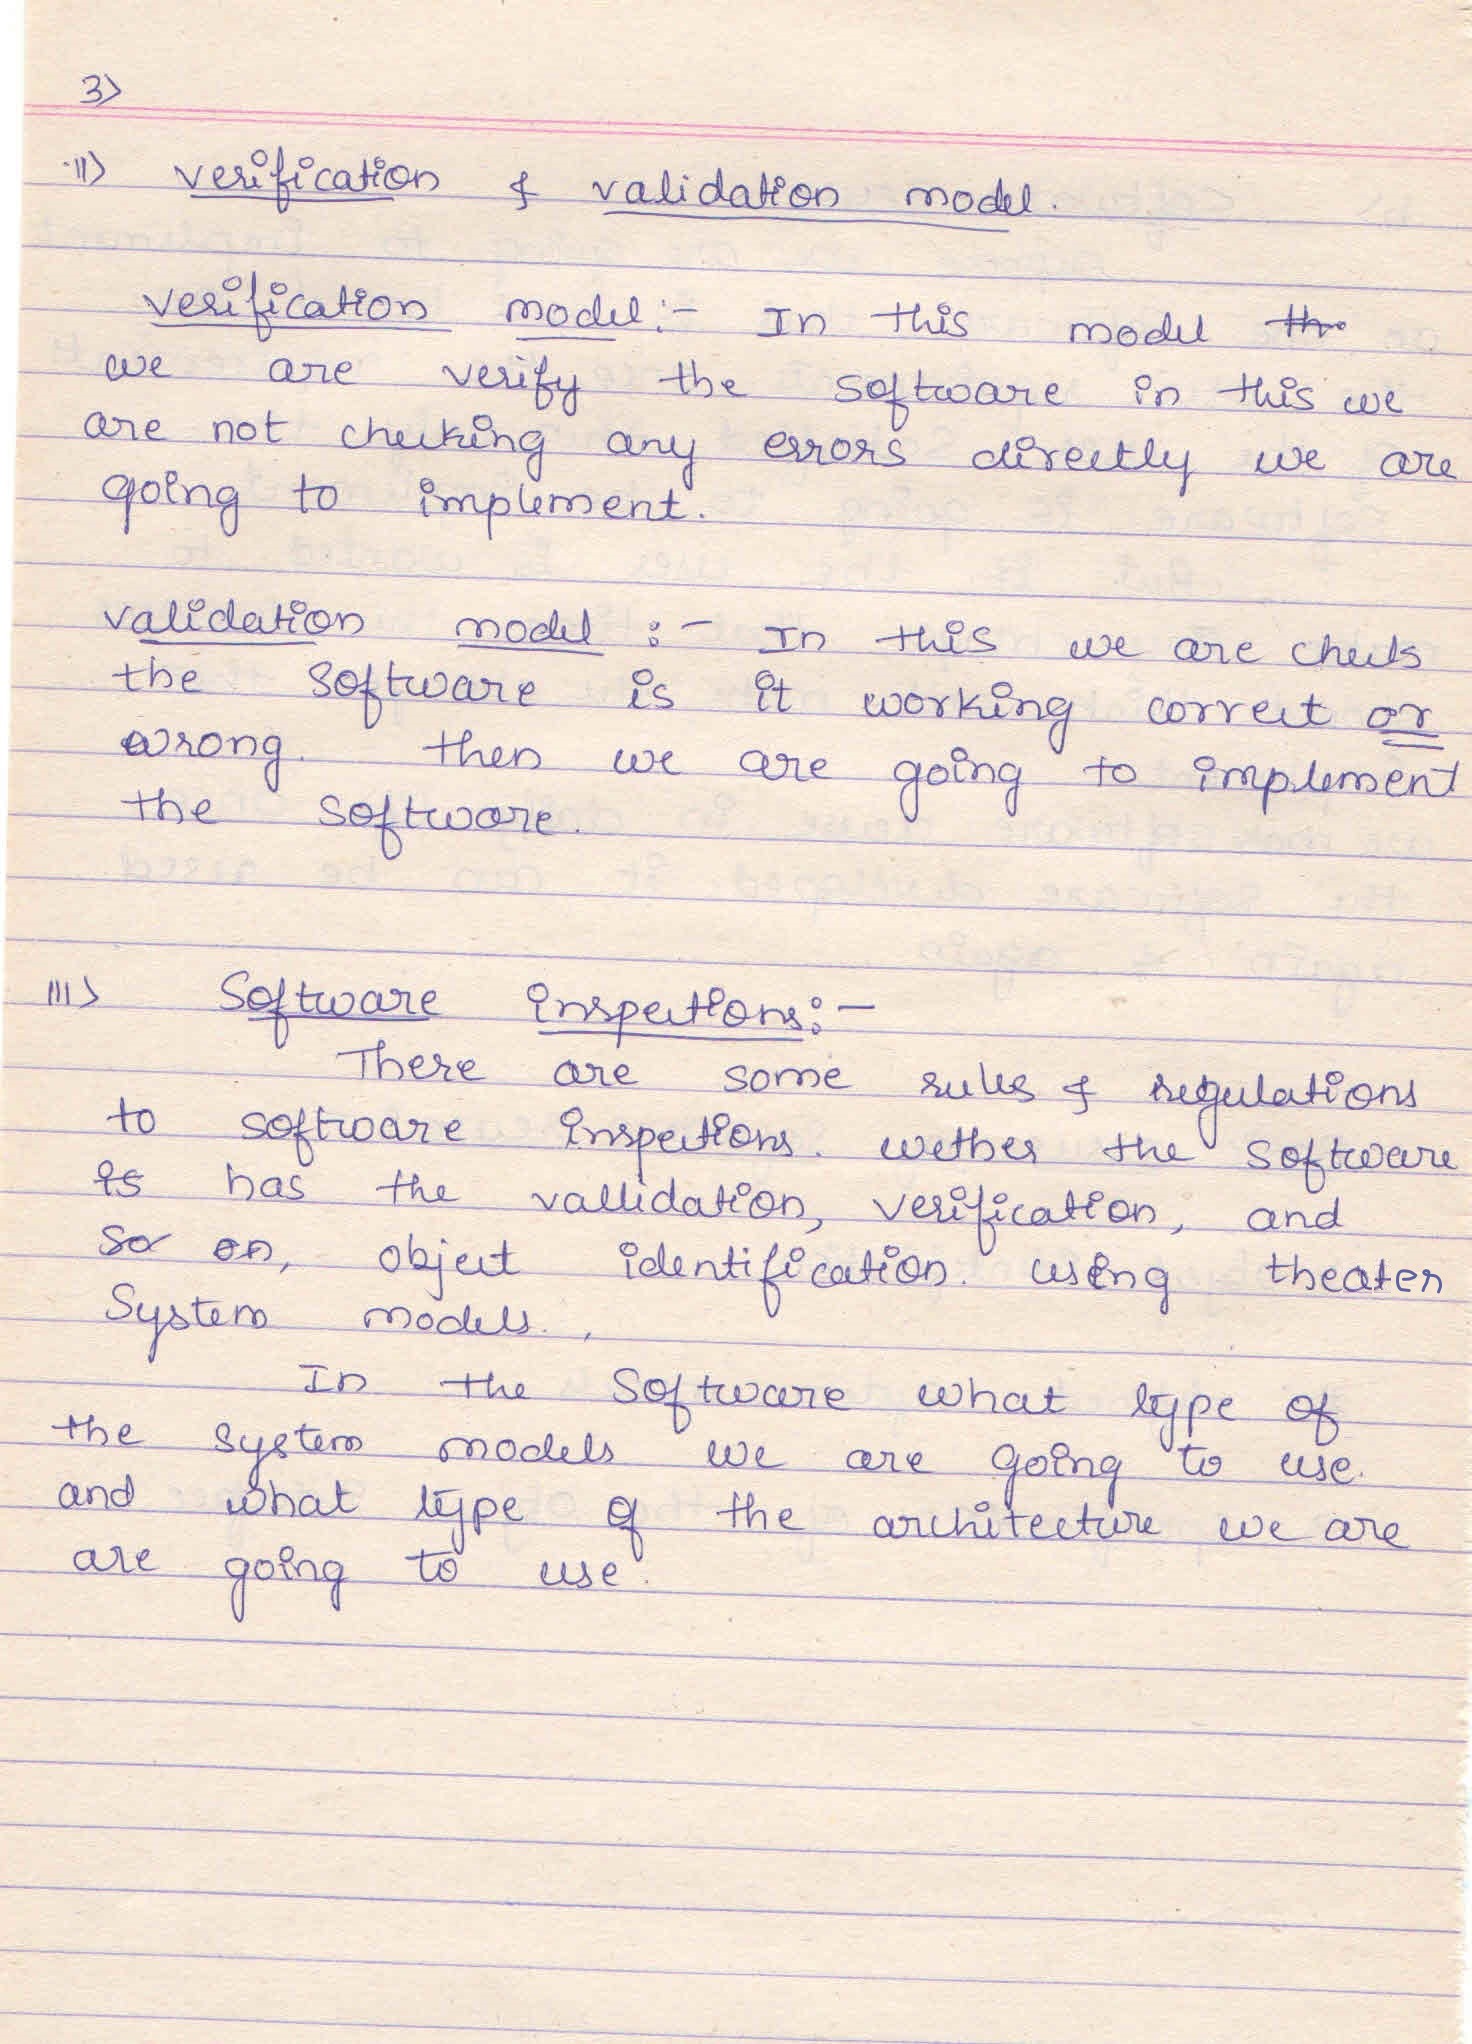 3)
ii) verification & validation model.
verification model:- In this model the
we are verify the software in this we
are not checking any errors directly we are
going to implement.
validation model :- In this we are check
the software is it working correct or
wrong. then we are going to implement
the software.
iii) Software inspections:-
There are some rules & regulations
to software inspections. wether the software
is has the vallidation, verification, and
so on, object identification. using theater
System models.
In the software what type of
the system models we are going to use.
and what type of the architecture we are
are going to use.